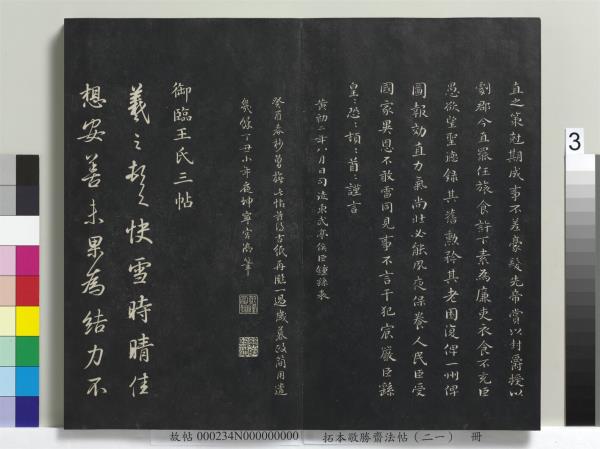 直之策尅期成事不差豪髮先帝賞以封爵授以
劇郡今直罷任旅食許下素為廉吏衣食不充臣
愚欲望聖德錄其舊勳矜其老困復俾一州俾
圖報効直力氣尚壯必能夙夜保養人民臣受
國家異恩不敢雷同見事不言干犯宸嚴臣繇
皇〻恐〻頓〻首〻謹言
黃初二年八月日司徒東武亭侯臣鍾繇表
癸酉春抄曾臨此帖昔得古紙再臨一過歲暮政簡用遣
幾餘丁丑小年夜坤寧宮御筆
御臨王氏三帖
羲之頓首快雪時晴佳
想安善未果為結力不
3
故帖 000234N000000000 拓本敬勝齋法帖(二一) 冊